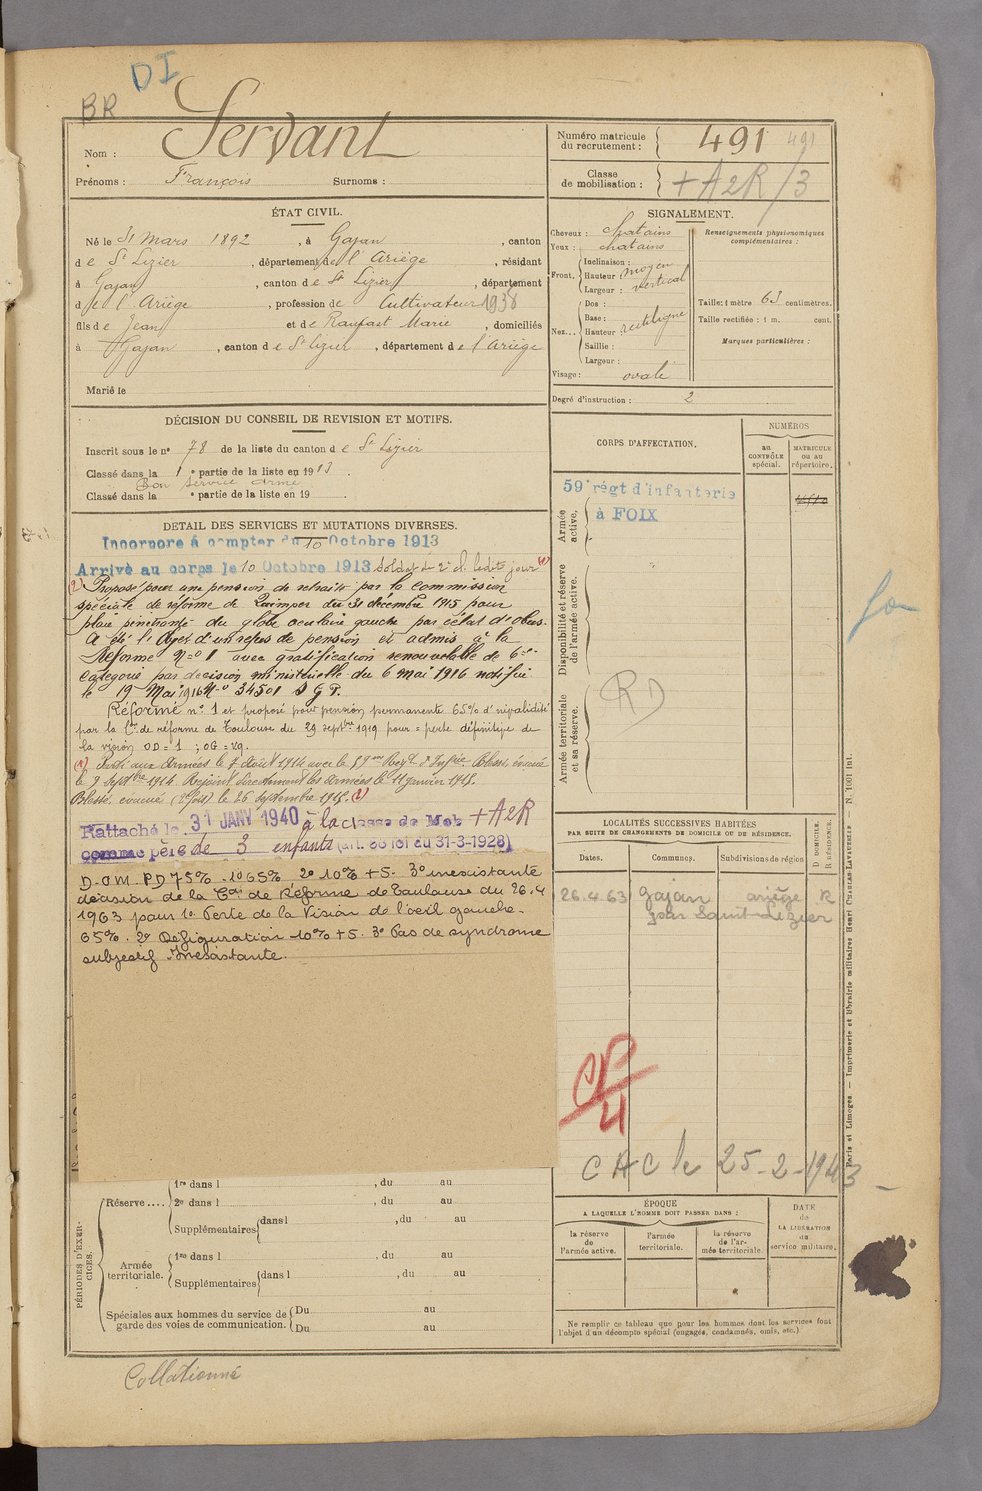 DI
BR
Nom : Servant
Prénoms : François Surnoms :
Numéro matricule du recrutement : 491 491
Classe de mobilisation : + A2R/3
ÉTAT CIVIL.
Né le 31 Mars 1892, à Gajan, canton
de St Lizier, département de l'Ariège, résidant
à Gajan, canton de St Lizier, département
de l'Ariège, profession de Cultivateur 1938
fils de Jean et de Raufast Marie, domiciliés
à Gajan, canton de St Lizier, département de l'Ariège
Marié le
DÉCISION DU CONSEIL DE REVISION ET MOTIFS.
Inscrit sous le n° 78 de la liste du canton de St Lizier
Classé dans la 1e partie de la liste en 1913.
Bon service armé
Classé dans la e partie de la liste en 19
DETAIL DES SERVICES ET MUTATIONS DIVERSES.
Incorporé à compter du 10 Octobre 1913
Arrivé au corps le 10 Octobre 1913 Soldat de 2e cl. ledit jour (1)
(2) Proposé pour une pension de retraite par la commission
spéciale de réforme de Quimper du 31 décembre 1915 pour
plaie pénétrante du globe oculaire gauche par éclat d'obus.
A été l'objet d'un refus de pension et admis à la
Réforme N° 1 avec gratification renouvelable de 6e
catégorie par décision ministérielle du 6 mai 1916 notifiée
le 19 Mai 1916 N° 34501 D G P.
Réformé n° 1 et proposé pour pension permanente 65% d'invalidité
par la Con de réforme de Toulouse du 29 septbre 1919 pour = perte définitive de
la vision OD = 1 ; OG = vq.
(1) Parti aux Armées le 7 Août 1914 avec le 59me Regt d'Infrie. Blessé, évacué
le 9 Septbre 1914. Rejoint directement les armées le 11 janvier 1915.
Blessé, évacué (2e fois) le 26 Septembre 1915. (2)
Rattaché le 31 JANV 1940 à la classe de Mob + A2R
comme père de 3 enfants (art. 58 loi du 31-3-1928)
D.O.M. PD 75% - 1° 65% 2° 10% + 5. 3° inexistante
décision de la Con de Réforme de Toulouse du 26.4
1963 pour 1° Perte de la Vision de l'oeil gauche.
65%. 2° Défiguration 10% + 5. 3° Pas de syndrome
subjectif Inexistante.
PÉRIODES D'EXERCICES.
Réserve....
1re dans l , du au
2e dans l , du au
Supplémentaires dans l , du au
Armée territoriale.
1re dans l , du au
Supplémentaires dans l , du au
Spéciales aux hommes du service de garde des voies de communication.
Du au
Du au
Collationné
SIGNALEMENT.
Cheveux : chatains
Yeux : chatains
Front.
Inclinaison :
Hauteur : moyen
Largeur : vertical
Nez...
Dos :
Base :
Hauteur : rectiligne
Saillie :
Largeur :
Visage : ovale
Renseignements physionomiques complémentaires :
Taille : 1 mètre 63 centimètres.
Taille rectifiée : 1 m. cent.
Marques particulières :
Degré d'instruction : 2
CORPS D'AFFECTATION.
NUMÉROS
au CONTRÔLE spécial.
MATRICULE ou au répertoire.
Armée active.
59e régt d'infanterie
à FOIX
Disponibilité et réserve de l'armée active.
Armée territoriale et sa réserve.
RD
LOCALITÉS SUCCESSIVES HABITÉES
PAR SUITE DE CHANGEMENTS DE DOMICILE OU DE RÉSIDENCE.
D DOMICILE. R RÉSIDENCE.
Dates. Communes. Subdivisions de région
26.4.63 Gajan ariège R
par Saint-Lizier
CAC le 25-2-1943
ÉPOQUE
A LAQUELLE L'HOMME DOIT PASSER DANS :
la réserve de l'armée active.
l'armée territoriale.
la réserve de l'armée territoriale
DATE de LA LIBÉRATION du service militaire.
Ne remplir ce tableau que pour les hommes dont les services font
l'objet d'un décompte spécial (engagés, condamnés, omis, etc.)
Paris et Limoges. — Imprimerie et librairie militaires Henri Charles-Lavauzelle — N. 1001 int.